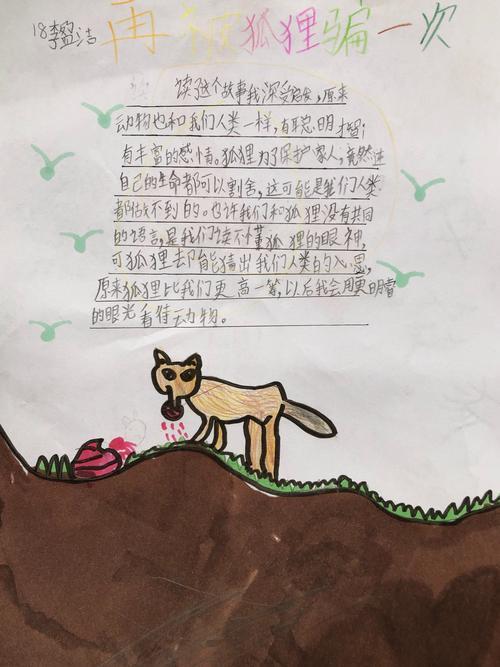 18李盈洁
再被狐狸骗一次
读了这个故事我深受启发,原来
动物也和我们人类一样,有聪明才智,
有丰富的感情。狐狸为了保护家人,竟然连
自己的生命都可以割舍,这可能是我们人类
都做不到的。也许我们和狐狸没有共同
的语言,是我们读不懂狐狸的眼神,
可狐狸却能猜出我们人类的心思,
原来狐狸比我们更高一筹,以后我会用更明睿
的眼光看待动物。